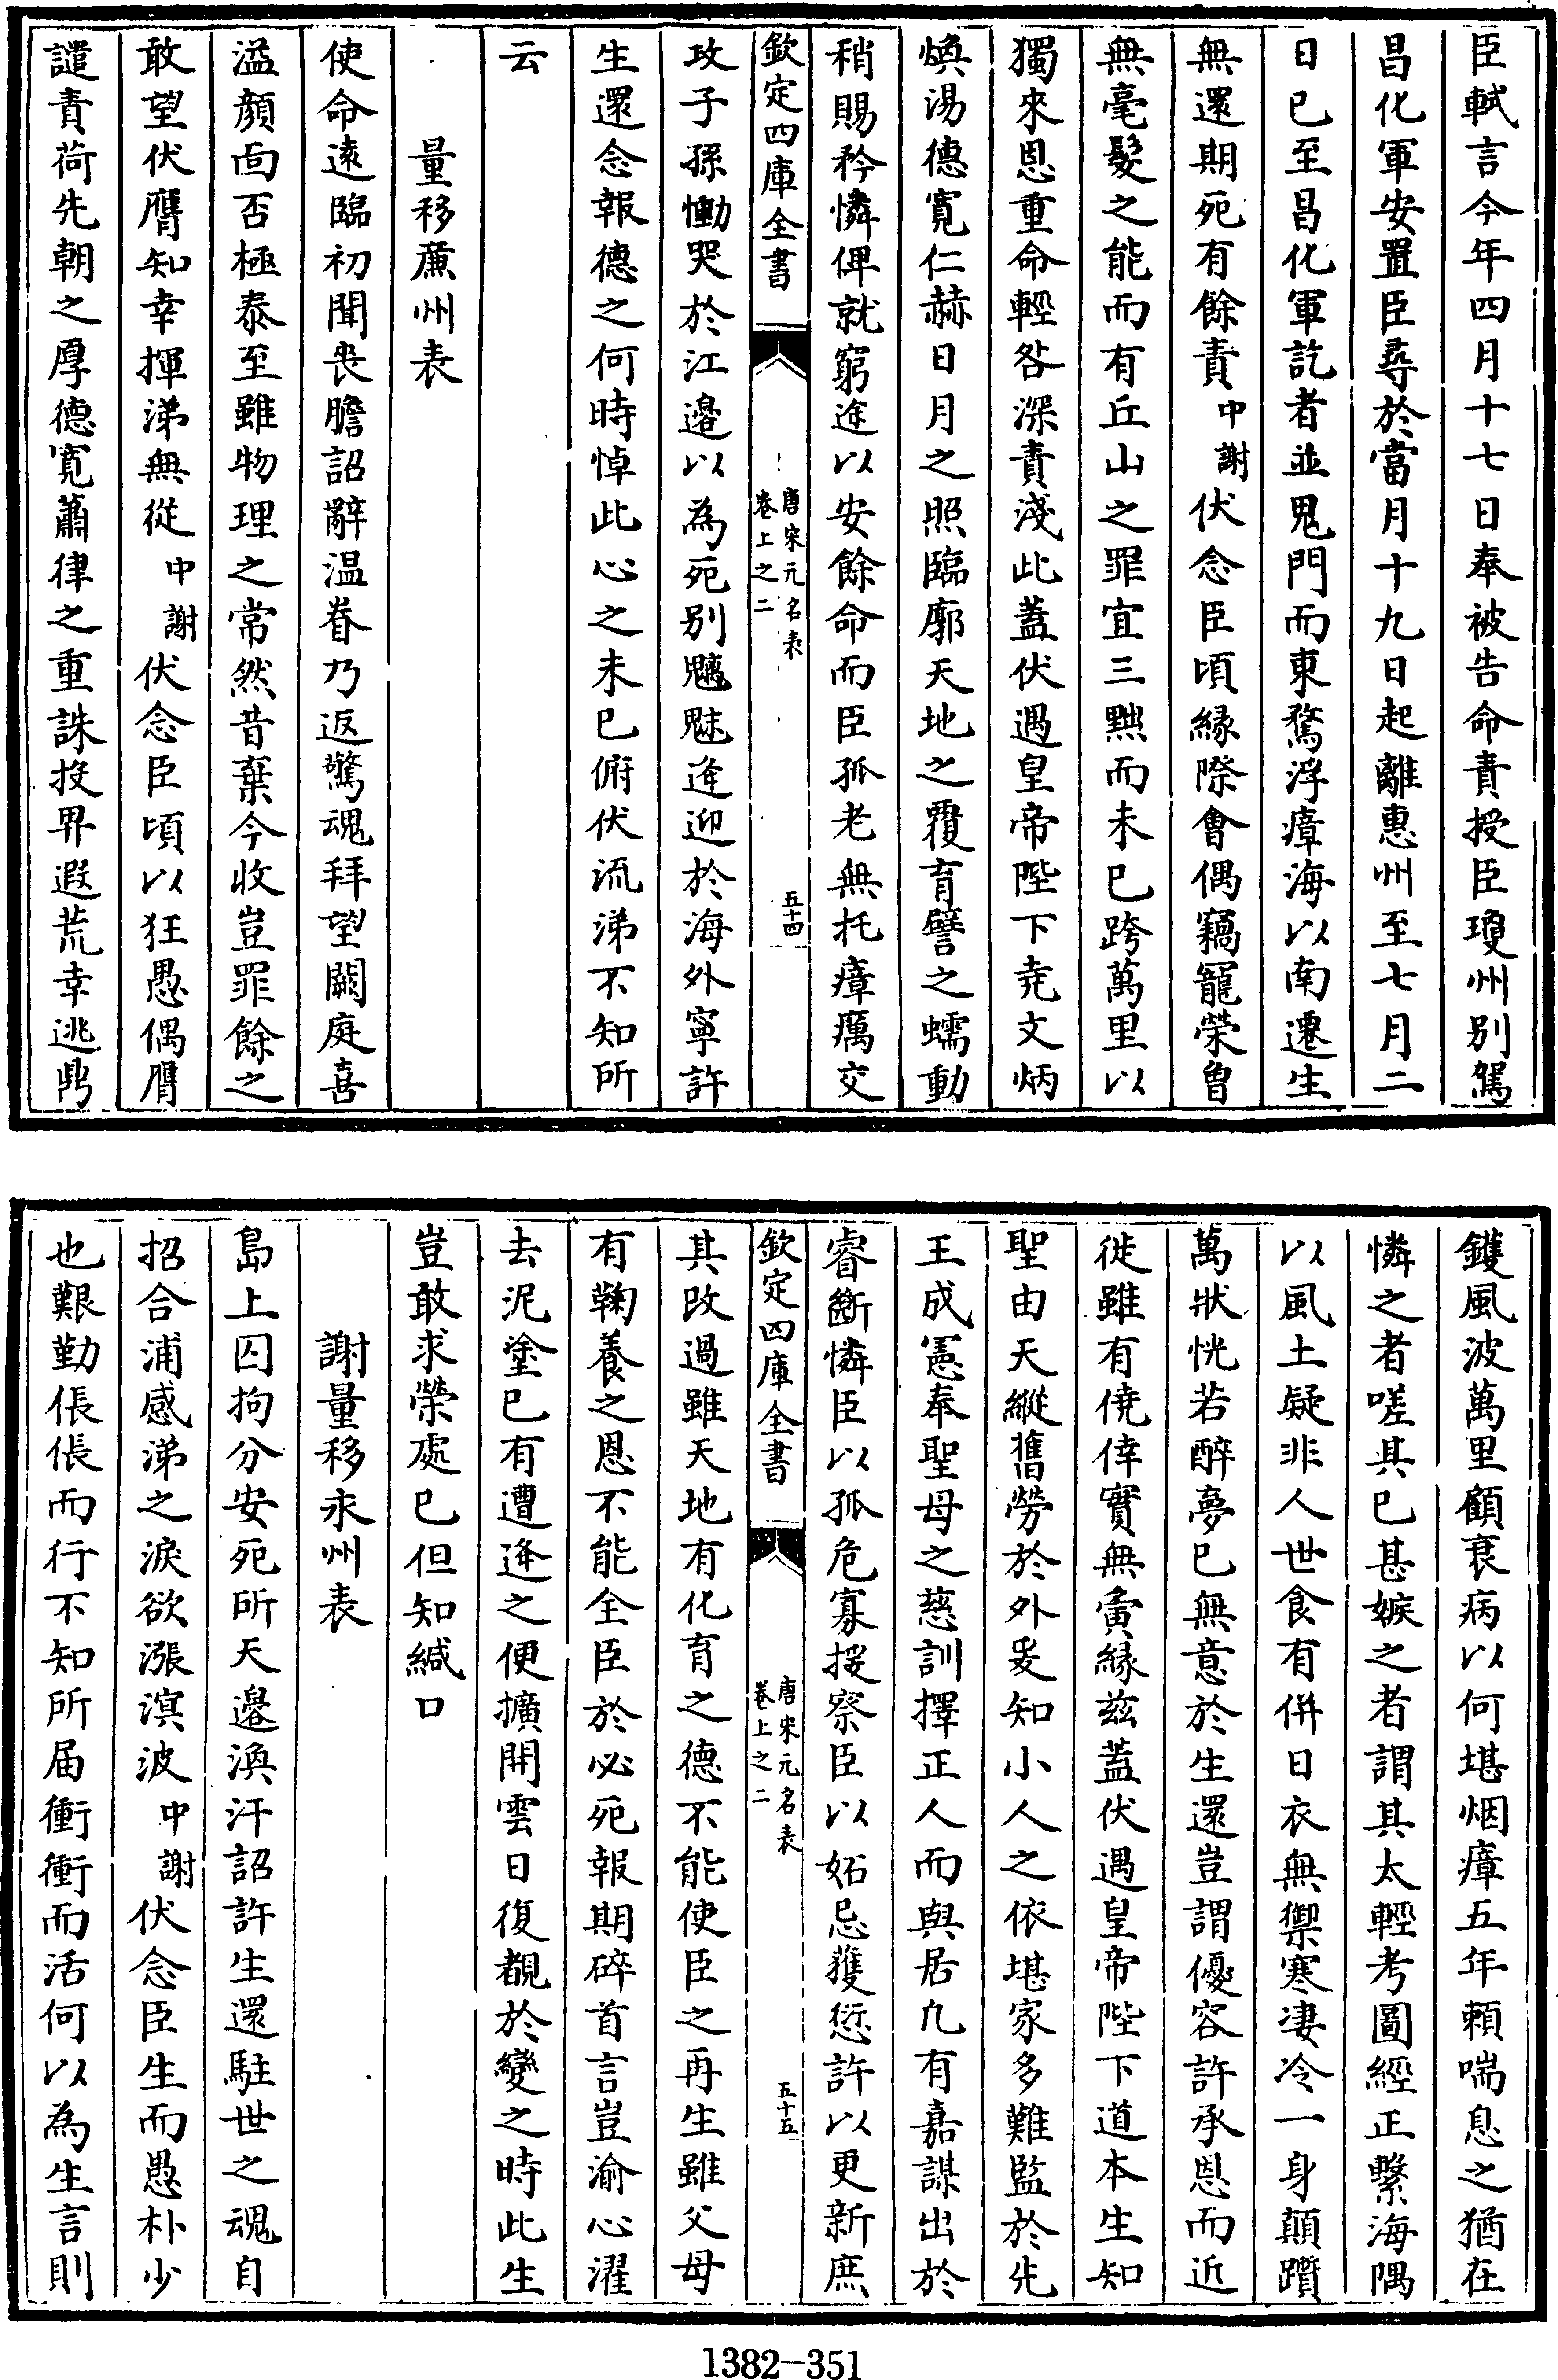 臣軾言今年四月十七日奉被告命責授臣瓊州別駕
昌化軍安置臣尋於當月十九日起離惠州至七月二
日已至昌化軍訖者並鬼門而東騖浮瘴海以南遷生
無還期死有餘責中謝伏念臣頃緣際會偶竊寵榮曾
無毫髮之能而有丘山之罪宜三黜而未已跨萬里以
獨來恩重命輕咎深責淺此蓋伏遇皇帝陛下堯文炳
煥湯德寬仁赫日月之照臨廓天地之覆育譬之蠕動
稍賜矜憐俾就窮途以安餘命而臣孤老無托瘴癘交
欽定四庫全書
唐宋元名表
卷上之二
五十四
攻子孫慟哭於江邊以為死別魑魅逢迎於海外寧許
生還念報德之何時悼此心之未已俯伏流涕不知所
云
量移廉州表
使命遠臨初聞喪膽詔辭温眷乃返驚魂拜望闕庭喜
溢顔面否極泰至雖物理之常然昔棄今收豈罪餘之
敢望伏膺知幸揮涕無從中謝伏念臣頃以狂愚偶膺
譴責荷先朝之厚德寬蕭律之重誅投畀遐荒幸逃鼎
鑊風波萬里顧衰病以何堪烟瘴五年賴喘息之猶在
憐之者嗟其已甚嫉之者謂其太輕考圖經正繫海隅
以風土疑非人世食有併日衣無禦寒凄冷一身顛躓
萬狀恍若醉夢已無意於生還豈謂優容許承恩而近
徙雖有僥倖實無夤緣兹蓋伏遇皇帝陛下道本生知
聖由天縱舊勞於外爰知小人之依堪家多難監於先
王成憲奉聖母之慈訓擇正人而與居凢有嘉謀出於
睿斷憐臣以孤危寡援察臣以妬忌獲愆許以更新庶
欽定四庫全書
唐宋元名表
卷上之二
五十五
其改過雖天地有化育之德不能使臣之再生雖父母
有鞠養之恩不能全臣於必死報期碎首言豈渝心濯
去泥塗已有遭逢之便擴開雲日復覩於變之時此生
豈敢求榮處已但知緘口
謝量移永州表
島上囚拘分安死所天邊渙汗詔許生還駐世之魂自
招合浦感涕之淚欲漲溟波中謝伏念臣生而愚朴少
也艱勤倀倀而行不知所届衝衝而活何以為生言則
1382—351